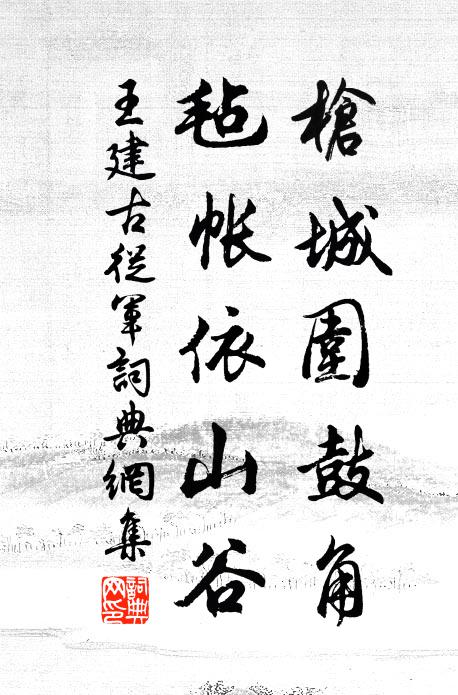 槍城圍鼓角
毡帳依山谷
王建古從軍詞典網集
詞典网印